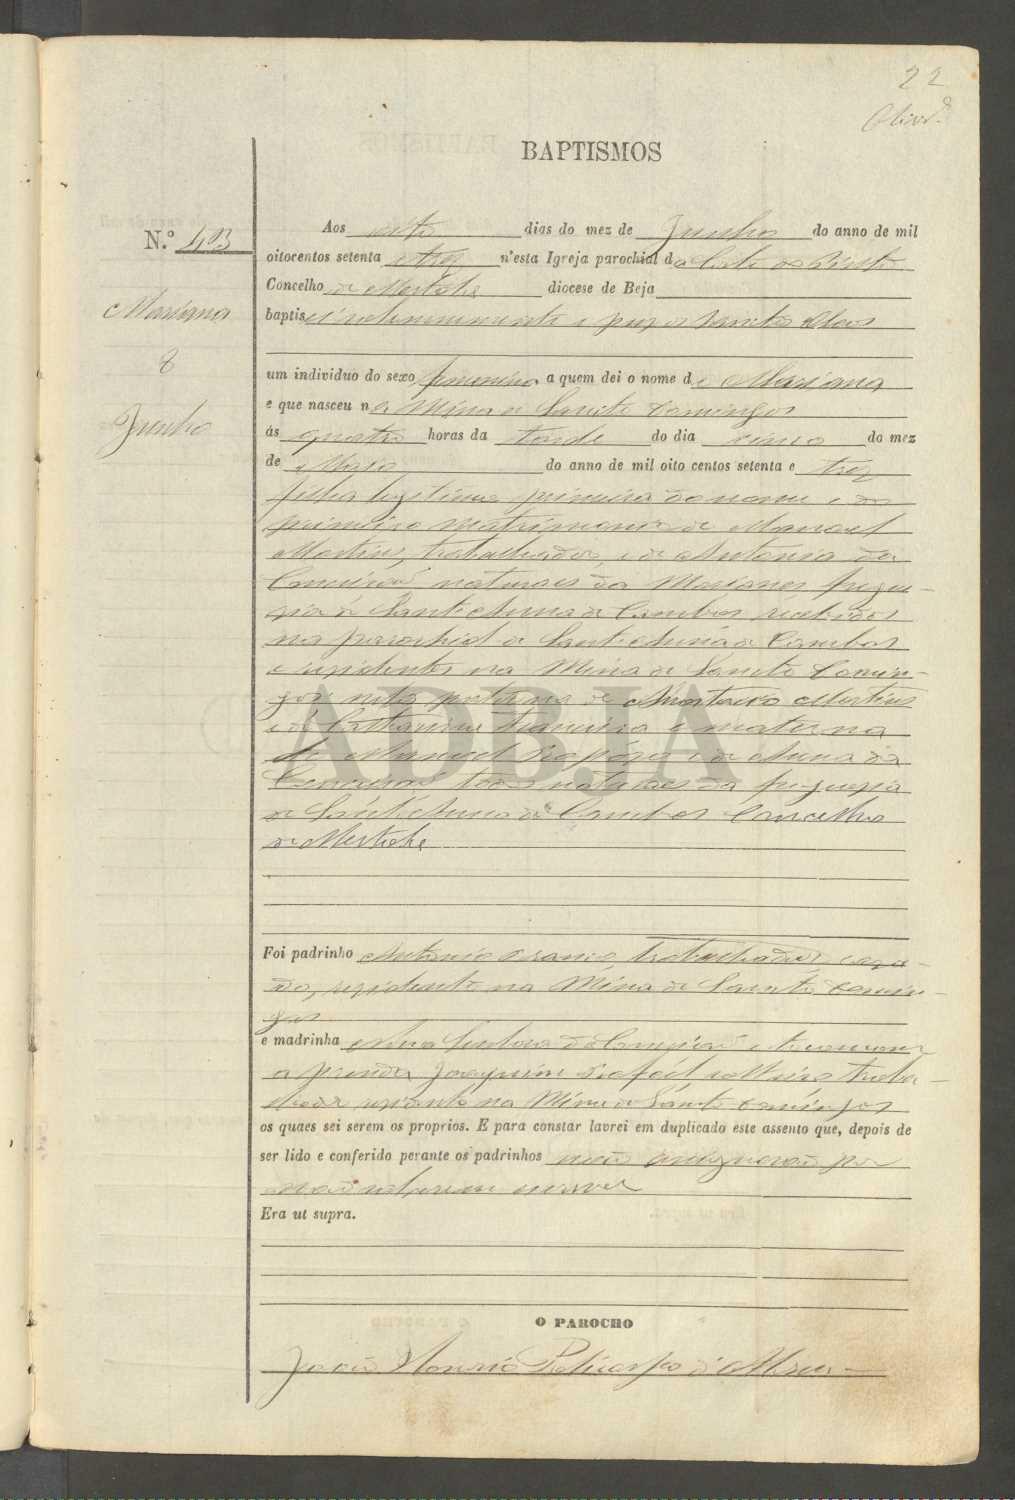 22
BAPTISMOS
N.º 43
Mariana
8
Junho
Aos oito dias do mez de Junho do anno de mil
oitocentos setenta e trez n'esta Igreja parochial da Corte do Pinto
Concelho de Mertola diocese de Beja
baptisei solemnemente e puz os Sanctos Oleos
um individuo do sexo femenino a quem dei o nome de Mariana
e que nasceu na Mina de Sancto Domingos
ás quatro horas da tarde do dia cinco do mez
de Maio do anno de mil oito centos setenta e trez
filha legitima primeira do nome e do
primeiro matrimonio de Manoel
Martins, trabalhador, e de Antonia da
Conceição naturaes da fregue-
sia de Sant'Anna de Cambas recebidos
na parochial de Sant'Anna de Cambas
e residentes na Mina de Sancto Domin-
gos neta paterna de Martins
e de Catharina e materna
de Manoel e de Anna da
Conceição todos naturaes da freguesia
de Sant'Anna de Cambas Concelho
de Mertola
ADBJA
Foi padrinho Antonio trabalhador, casa-
do, residente na Mina de Sancto Domin-
gos
e madrinha Nossa Senhora da Conceição e tocou com
a prenda Joaquim traba-
lhador residente na Mina de Sancto Domingos
os quaes sei serem os proprios. E para constar lavrei em duplicado este assento que, depois de
ser lido e conferido perante os padrinhos não assignarão por
não saberem escrever
Era ut supra.
O PAROCHO
João Policarpo d'